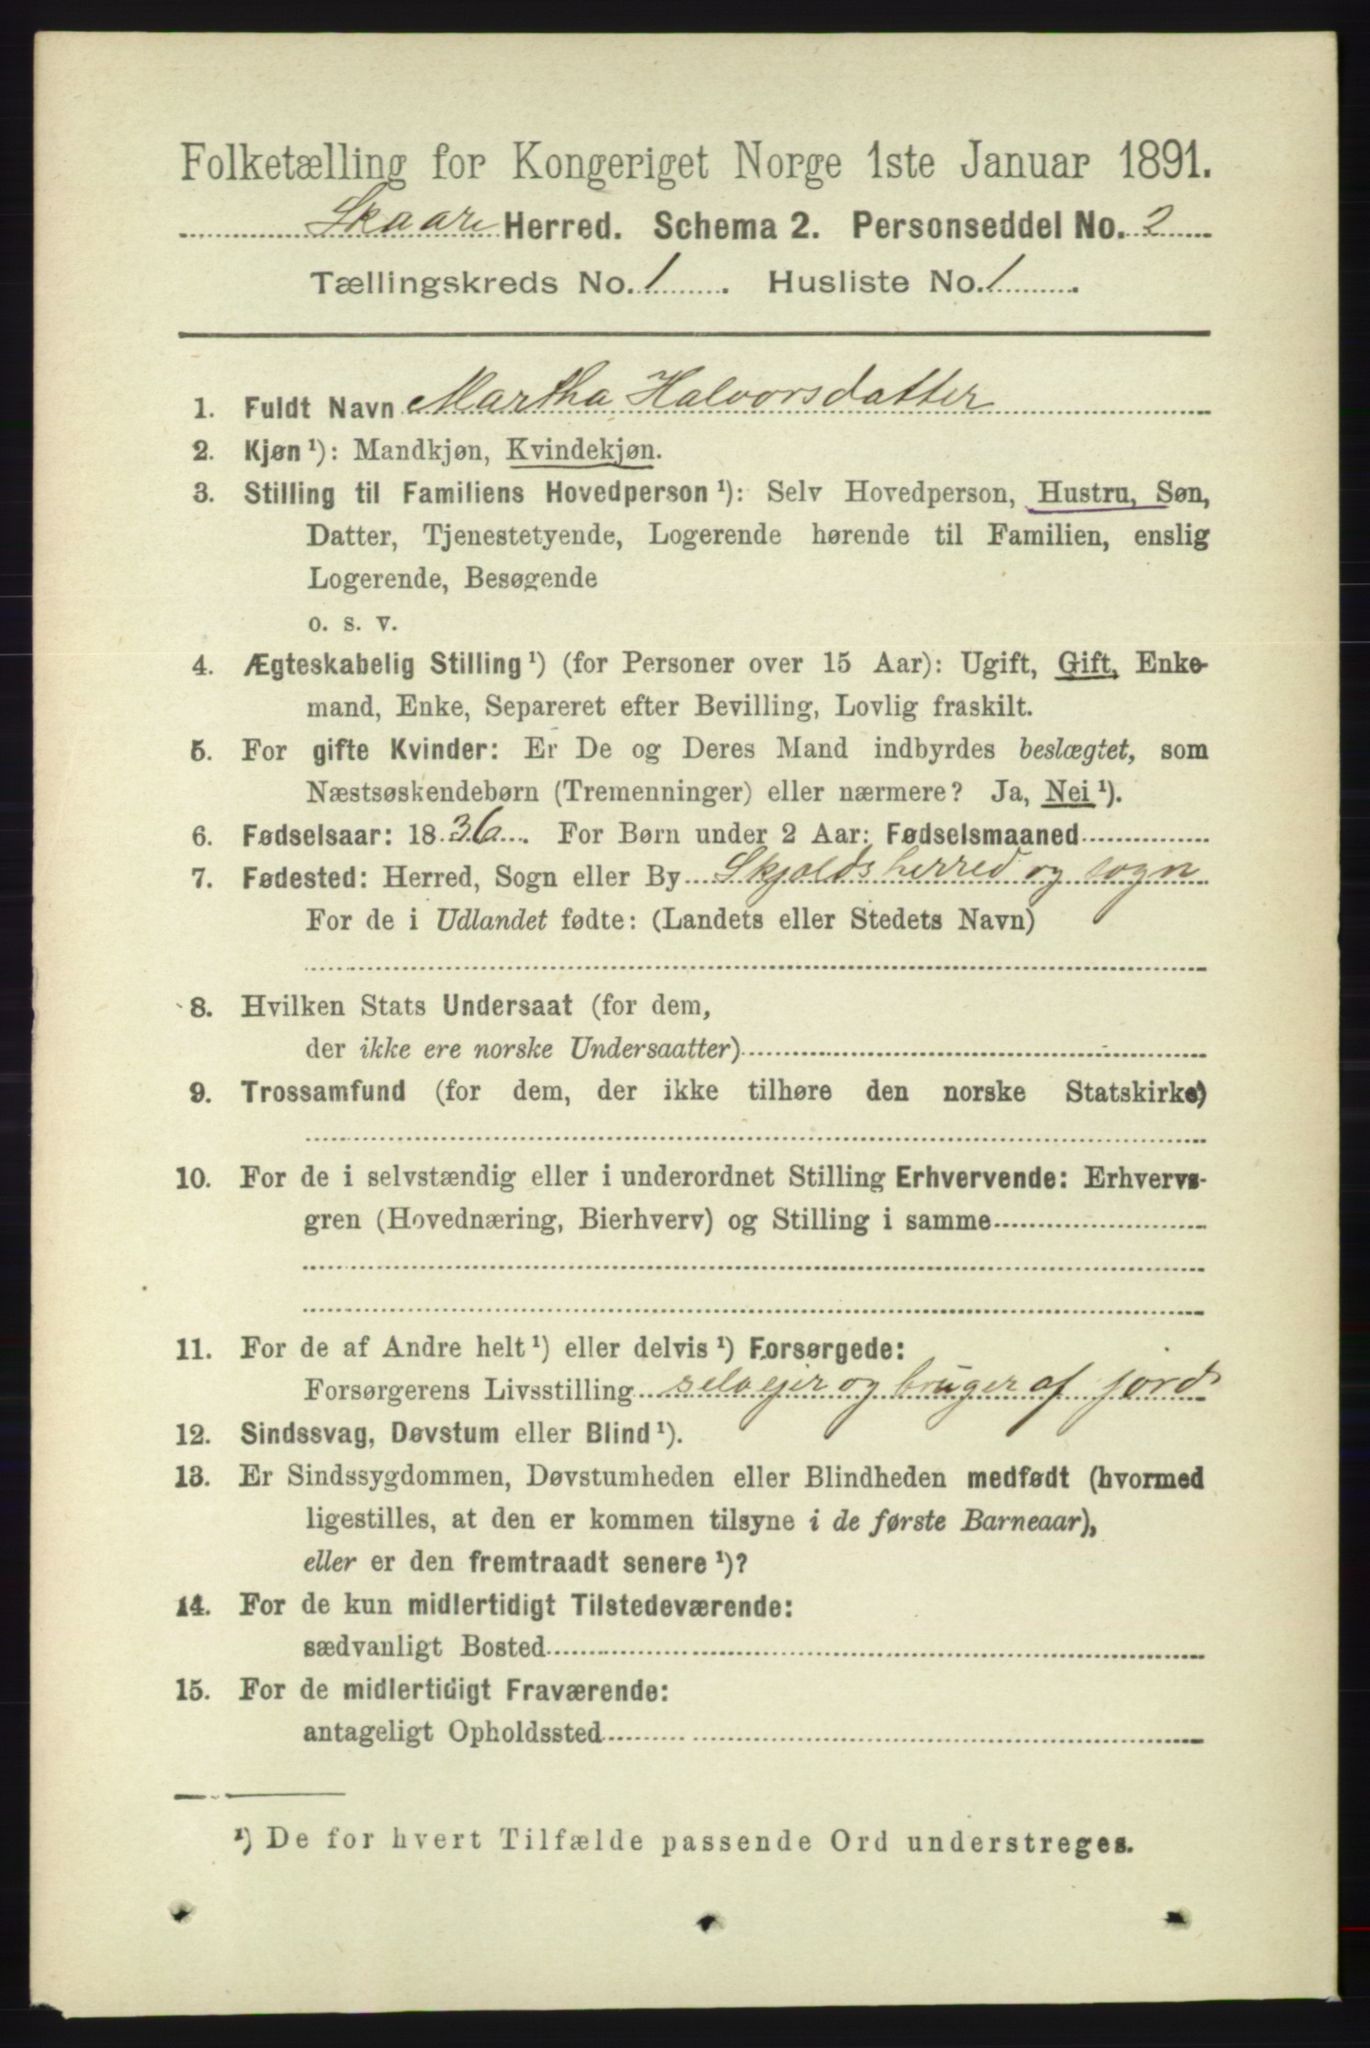 Folketælling for Kongeriget Norge 1ste Januar 1891.
Skaare Herred. Schema 2. Personseddel No. 2
Tællingskreds No. 1. Husliste No. 1.
1. Fuldt Navn Martha Halvorsdatter
2. Kjøn¹): Mandkjøn, Kvindekjøn.
3. Stilling til Familiens Hovedperson¹): Selv Hovedperson, Hustru, Søn,
Datter, Tjenestetyende, Logerende hørende til Familien, enslig
Logerende, Besøgende
o. s. v.
4. Ægteskabelig Stilling¹) (for Personer over 15 Aar): Ugift, Gift, Enke-
mand, Enke, Separeret efter Bevilling, Lovlig fraskilt.
5. For gifte Kvinder: Er De og Deres Mand indbyrdes beslægtet, som
Næstsøskendebørn (Tremenninger) eller nærmere? Ja, Nei¹).
6. Fødselsaar: 1836. For Børn under 2 Aar: Fødselsmaaned
7. Fødested: Herred, Sogn eller By Skjolds herred og sogn
For de i Udlandet fødte: (Landets eller Stedets Navn)
8. Hvilken Stats Undersaat (for dem,
der ikke ere norske Undersaatter)
9. Trossamfund (for dem, der ikke tilhøre den norske Statskirke)
10. For de i selvstændig eller i underordnet Stilling Erhvervende: Erhvervs-
gren (Hovednæring, Bierhverv) og Stilling i samme
11. For de af Andre helt¹) eller delvis¹) Forsørgede:
Forsørgerens Livsstilling selveier og bruger af jord
12. Sindssvag, Døvstum eller Blind¹).
13. Er Sindssygdommen, Døvstumheden eller Blindheden medfødt (hvormed
ligestilles, at den er kommen tilsyne i de første Barneaar),
eller er den fremtraadt senere¹)?
14. For de kun midlertidigt Tilstedeværende:
sædvanligt Bosted
15. For de midlertidigt Fraværende:
antageligt Opholdssted
¹) De for hvert Tilfælde passende Ord understreges.